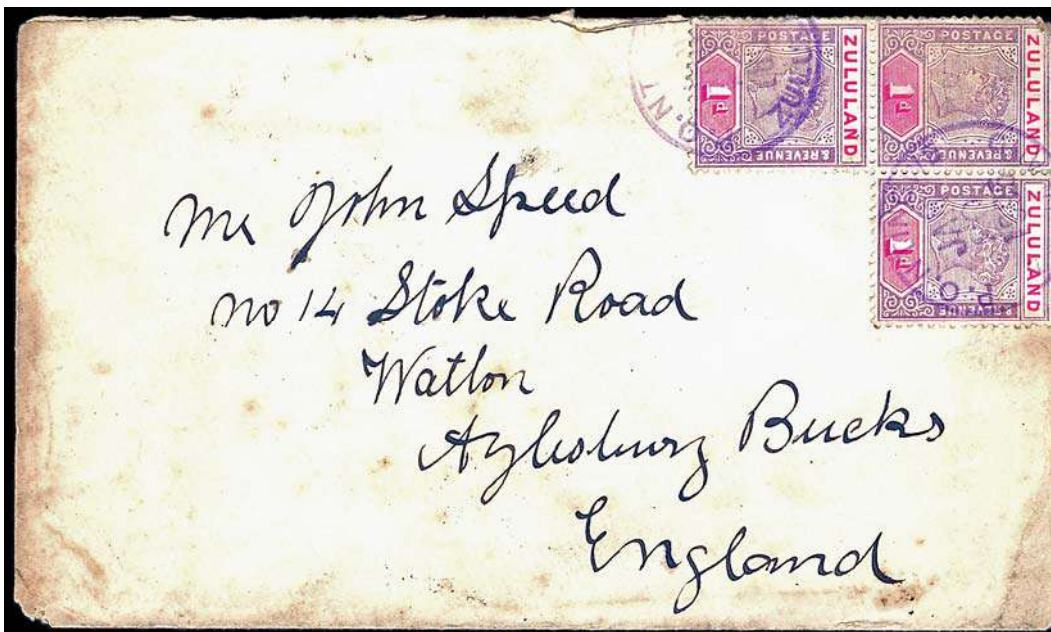 POSTAGE
ZULULAND
1d
& REVENUE
POSTAGE
ZULULAND
1d
& REVENUE
POSTAGE
ZULULAND
1d
Mr John Speed
no 14 Stoke Road
Walton
Aylesbury Bucks
England